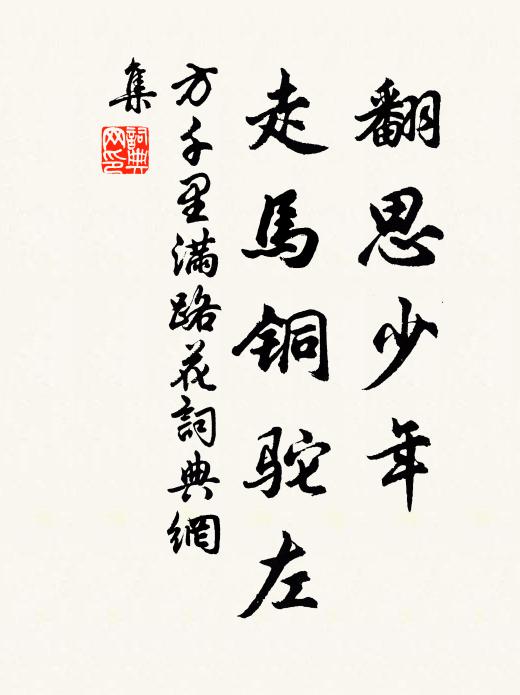 翻思少年
走馬铜驼左
方千里满路花詞典網
集
詞典网印